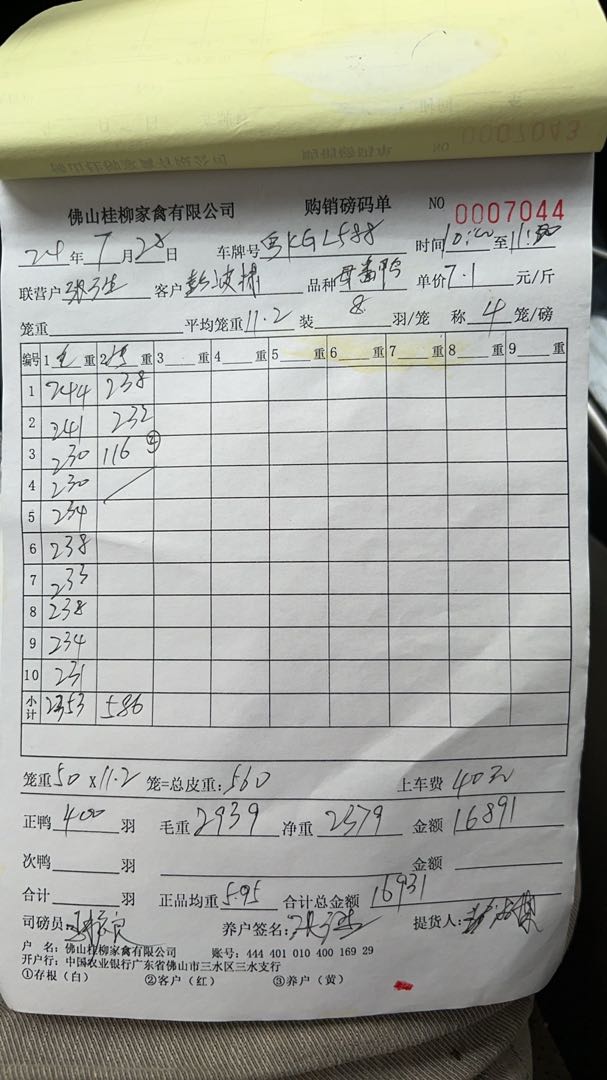 佛山桂柳家禽有限公司 购销磅码单 NO 0007044
24年7月28日 车牌号 粤KGL588 时间10:00至11:30
联营户 客户 品种 单价7.1元/斤
笼重 平均笼重11.2 装8羽/笼 称4笼/磅
编号 1 毛重 2 毛重 3 重 4 重 5 重 6 重 7 重 8 重 9 重
1 244 238
2 241 232
3 230 116 ②
4 230
5 234
6 238
7 233
8 238
9 234
10 231
小计 2353 586
笼重50x11.2笼=总皮重:560 上车费 40元
正鸭400羽 毛重2939 净重2379 金额16891
次鸭 羽 金额
合计 羽 正品均重5.95 合计总金额16931
司磅员: 养户签名: 提货人:
户 名:佛山桂柳家禽有限公司 账号:444 401 010 400 169 29
开户行:中国农业银行广东省佛山市三水区三水支行
①存根(白) ②客户(红) ③养户(黄)